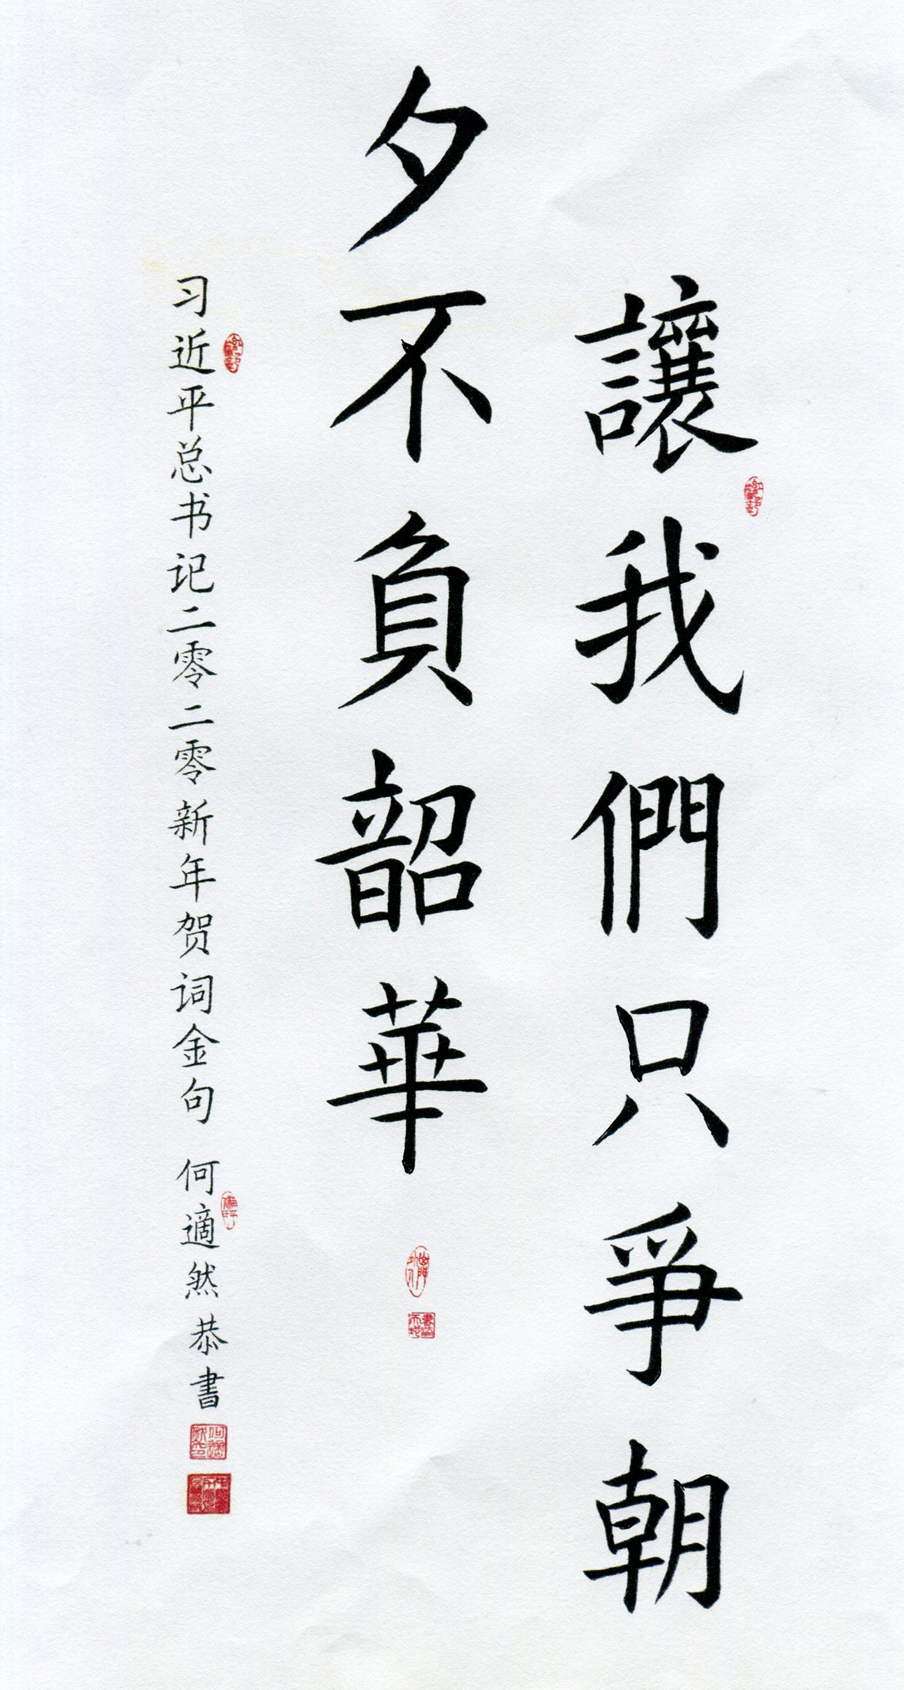 讓我們只爭朝
夕不負韶華
习近平总书记二零二零新年贺词金句 何適然恭書